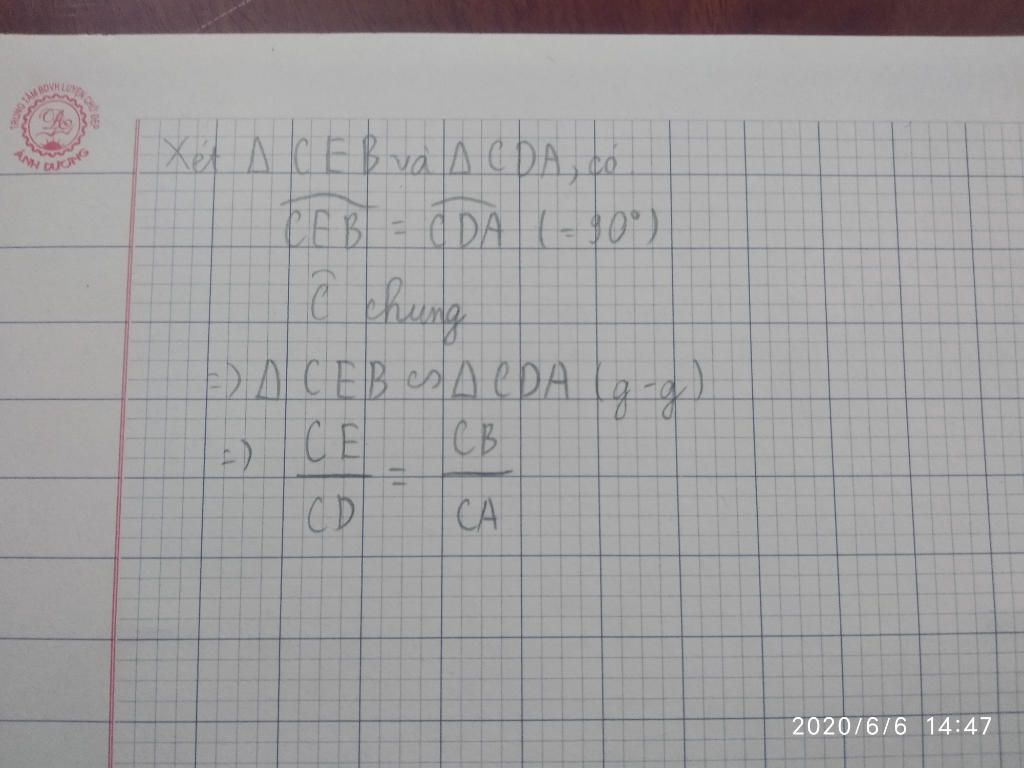 TRUNG TÂM BDVH LUYỆN CHỮ ĐẸP
ÁNH DƯƠNG
Xét Δ CEB và Δ CDA, có
CEB = CDA (= 90°)
C chung
=) Δ CEB ∽ Δ CDA (g-g)
=) CE/CD = CB/CA
2020/6/6 14:47